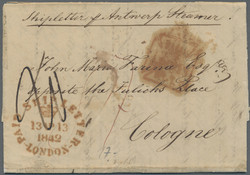 Shipletter pr Antwerp Steamer.
John Maria Farina Esqre
opposite the Julichs Place
Cologne
SHIP-LETTER-LONDON-PAID
13 13
1842
7.